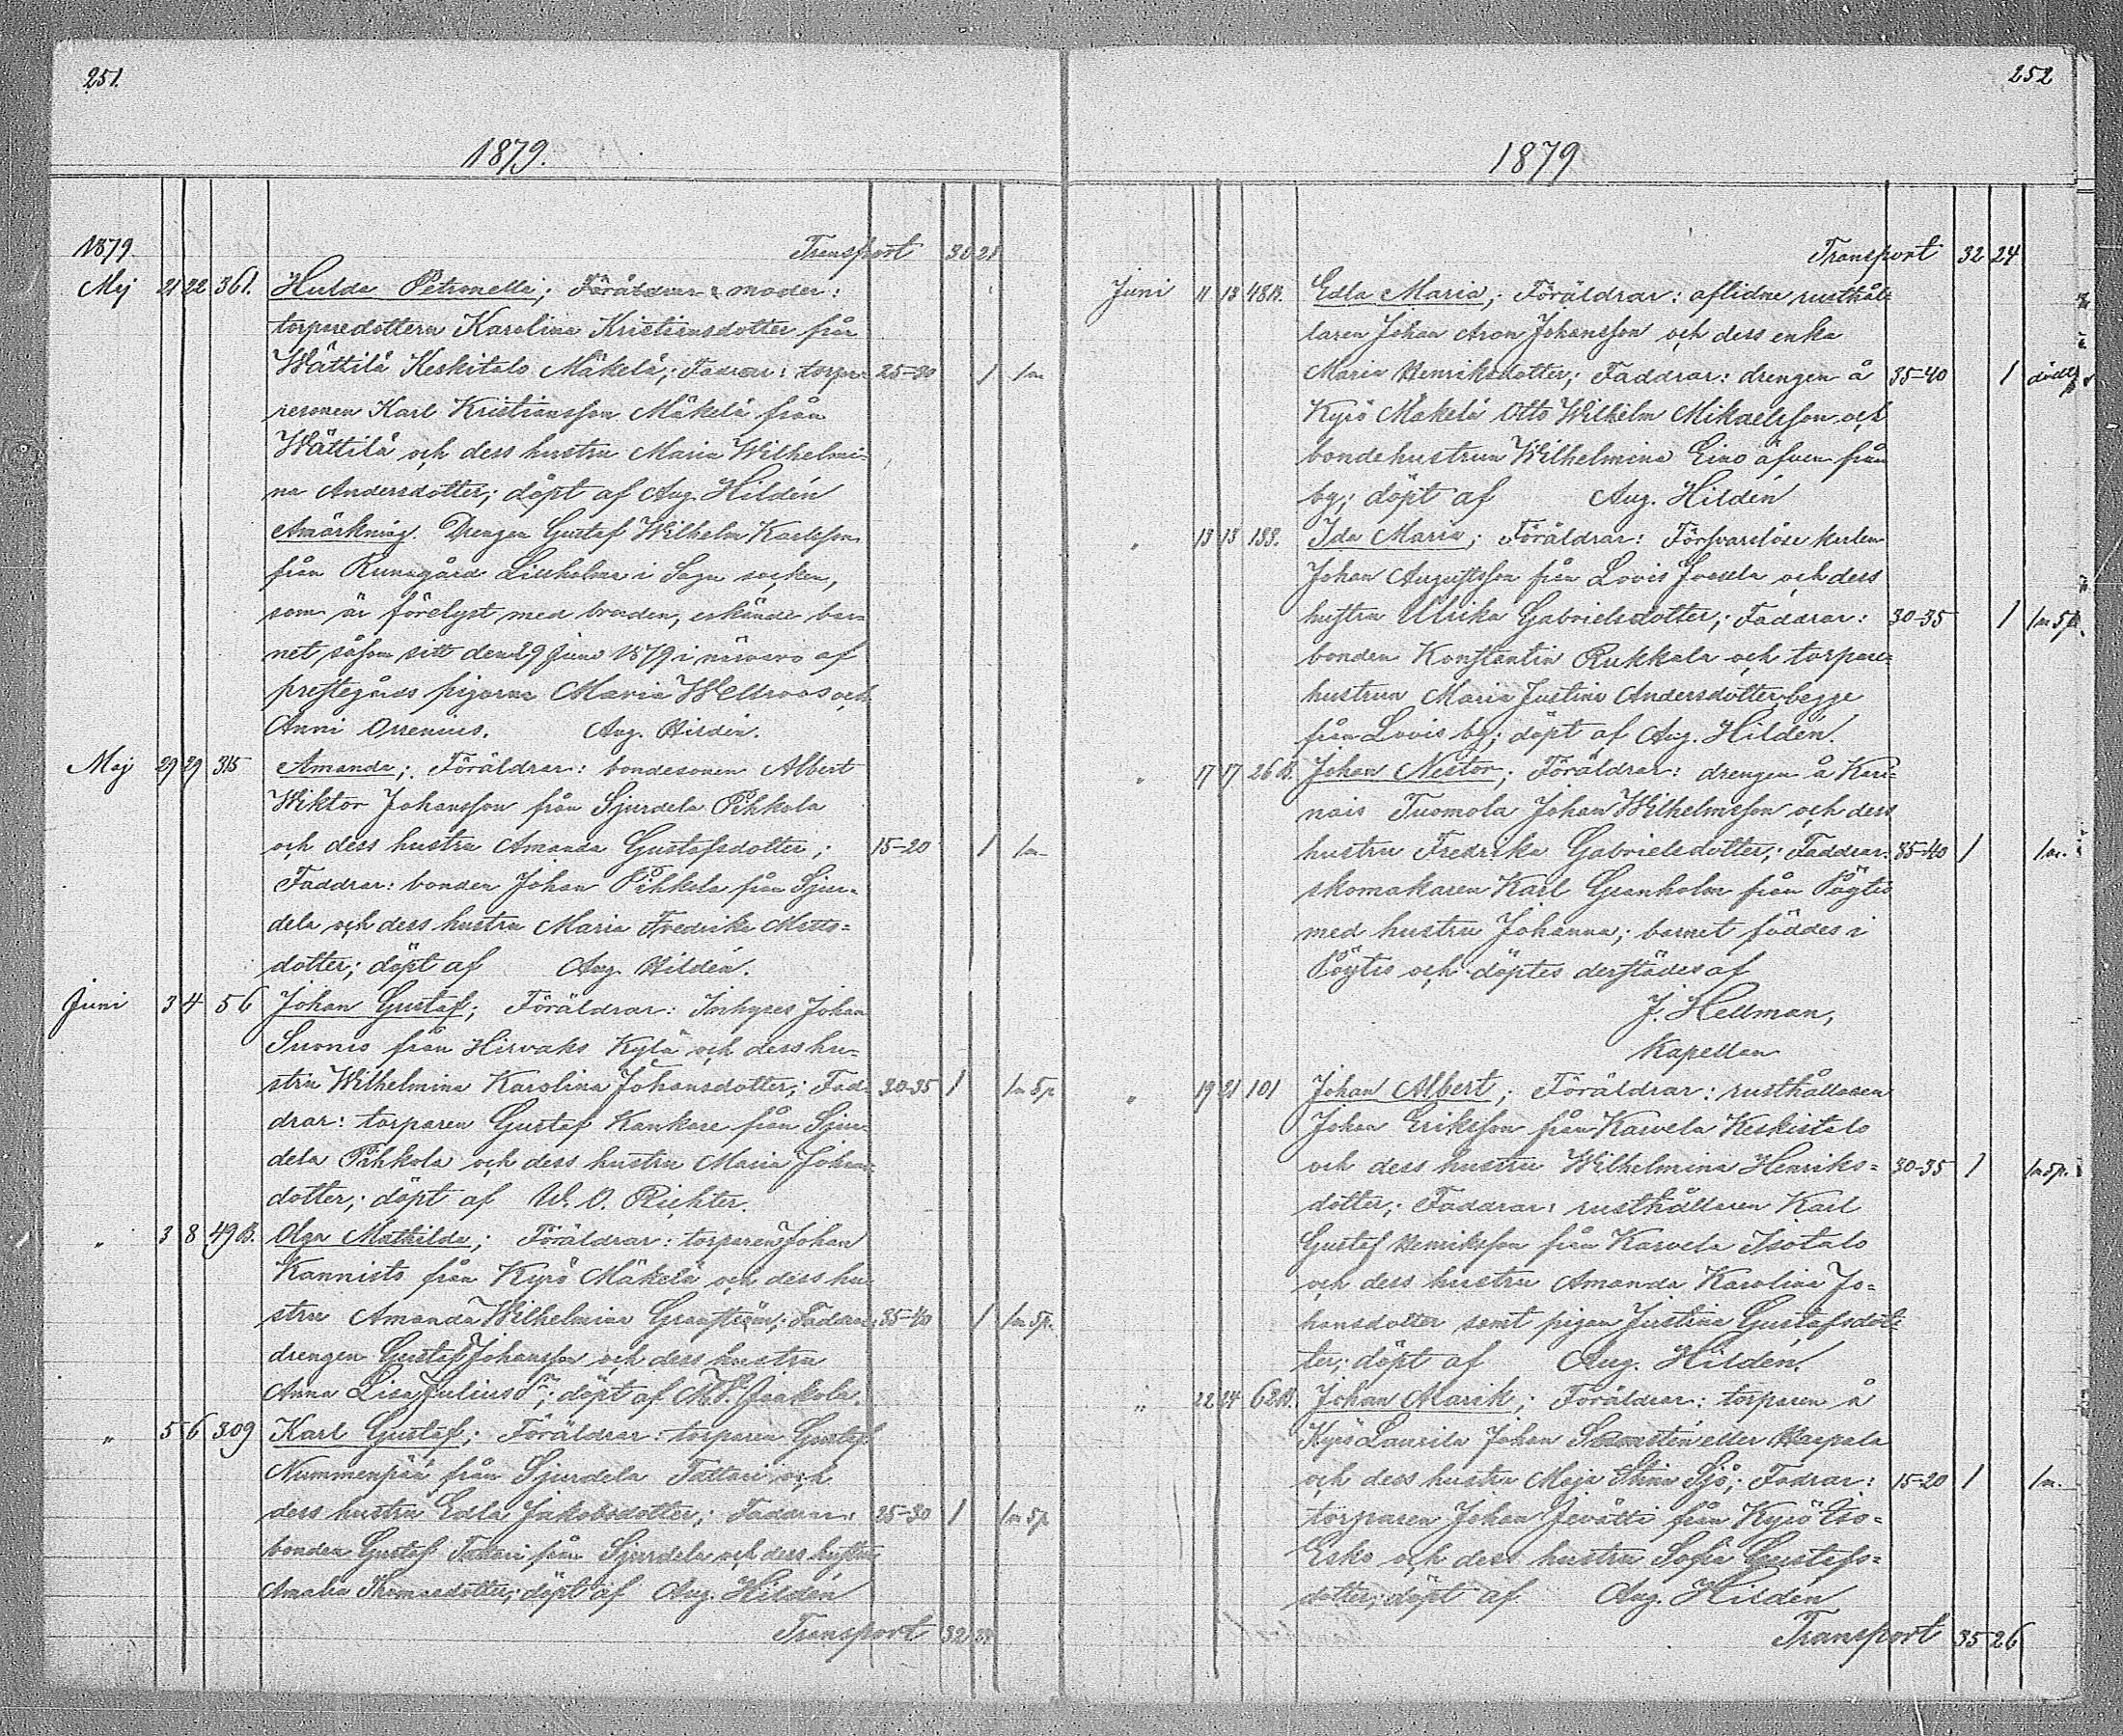 251.
1879.
1879. Transport 30 21
Maj 21 22 361. Hulda Petronella; Föräldrar: moder:
torparedottern Karolina Kristiansdotter från
Wättilä Keskitalo Mäkelä; Faddrar: torpa- 25-30 1 1m
resonen Karl Kristiansson Mäkelä från
Wättilä och dess hustru Maria Wilhelmi-
na Andersdotter; döpt af Aug. Hildén
Amärkning. Drengen Gustaf Wilhelm Karlsson
från Runagård Lillholma i Sagu socken,
som är förelyst med bruden, erkände bar-
net såsom sitt den 29 Juni 1879 i närvaro af
prestegårds pigorna Maria Wellroos och
Anni Arrenius. Aug. Hildén.
Maj 29 29 315 Amanda; Föräldrar: bondesonen Albert
Wiktor Johansson från Sjurdela Pihkola
och dess hustru Amanda Gustafsdotter; 15-20 1 1m
Faddrar: bonden Johan Pihkola från Sjur-
dela och dess hustru Maria Fredrika Matts-
dotter; döpt af Aug. Hildén.
Juni 3 4 56 Johan Gustaf; Föräldrar: Inhyses Johan
Suonio från Hirvaks Kylä och dess hu-
stru Wilhelmina Karolina Johansdotter; Fad- 30-35 1 1m 5p
drar: torparen Gustaf Kankare från Sjur-
dela Pihkola och dess hustru Maria Johans-
dotter; döpt af W. O. Richter.
" 3 8 49B. Olga Mathilda; Föräldrar: torparen Johan
Kannisto från Kyrö Mäkelä och dess hu-
stru Amanda Wilhelmina Granström; Faddrar: 35-40 1 1m 5p.
drengen Gustaf Johansson och dess hustru
Anna Lisa Juliusdr; döpt af Jaakola.
" 5 6 309 Karl Gustaf; Föräldrar: torparen Gustaf
Nummenpää från Sjurdela Tattari och
dess hustru Edla Jakobsdotter; Faddrar: 25-30 1 1m 5p
bonden Gustaf Tattari från Sjurdela och dess hustru
Amalia Thomasdotter; döpt af Aug. Hildén
Transport 32 24
252
1879
Transport 32 24
Juni 11 13 48B. Edla Maria; Föräldrar: aflidne rusthål-
laren Johan Aron Johansson och dess enka
Maria Henriksdotter; Faddrar: drengen å 35-40 1
Kyrö Mäkelä Otto Wilhelm Mikaelsson och
bondehustrun Wilhelmina Eino äfven från
by; döpt af Aug. Hildén
" 13 15 188. Ida Maria; Föräldrar: Försvarslöse karlen
Johan Augustsson från Lovis Jossela och dess
hustru Ulrika Gabrielsdotter; Faddrar: 30-35 1 1m 5p.
bonden Konstantin Rukkala och torpare-
hustrun Maria Justina Andersdotter begge
från Lovis by; döpt af Aug. Hildén.
" 17 17 26B. Johan Nestor; Föräldrar: drengen å Kari-
nais Tuomola Johan Wilhelmsson och dess
hustru Fredrika Gabrielsdotter; Faddrar: 35-40 1 1m.
skomakaren Karl Granholm från Pöytis
med hustru Johanna; barnet föddes i
Pöytis och döptes derstädes af
J. Hellman,
Kapellan
" 19 21 101 Johan Albert; Föräldrar: rusthållaren
Johan Eriksson från Karvela Keskitalo
och dess hustru Wilhelmina Henriks- 30-35 1 1m 5p.
dotter; Faddrar: rusthållaren Karl
Gustaf Henriksson från Karvela Isotalo
och dess hustru Amanda Karolina Jo-
hansdotter samt pigan Justina Gustafsdot-
ter; döpt af Aug. Hildén.
" 22 24 62B. Johan Marik; Föräldrar: torparen å
Kyrö Laurila Johan eller Haapala
och dess hustru Maja Stina Sjö; Faddrar: 15-20 1 1m.
torparen Johan Jevätti från Kyrö Iso-
Esko och dess hustru Sofia Gustafs-
dotter; döpt af Aug. Hildén
Transport 35 26